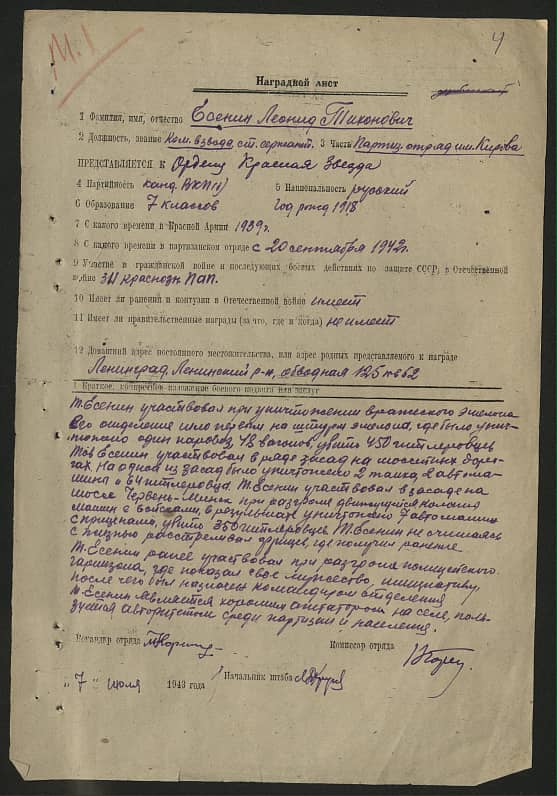 М.1
4
Наградной лист
1 Фамилия, имя, отчество Есенин Леонид Тихонович
2 Должность, звание Ком. взвода ст. сержант. 3 Часть Партиз. отряд им. Кирова
ПРЕДСТАВЛЯЕТСЯ к Ордену Красная Звезда
4 Партийность канд. ВКП(б) 5 Национальность русский
6 Образование 7 классов год рожд 1918
7 С какого времени в Красной Армии 1939 г.
8 С какого времени в партизанском отряде с 20 сентября 1942 г.
9 Участие в гражданской войне и последующих боевых действиях по защите СССР, в Отечественной
войне 311 Краснозн ПАП.
10 Имеет ли ранения и контузии в Отечественной войне имеет
11 Имеет ли правительственные награды (за что, где и когда) не имеет
12 Домашний адрес постоянного местожительства, или адрес родных представляемого к награде
Ленинград Ленинский р-н, обводная 125 кв 62
1 Краткое, конкретное изложение боевого подвига или заслуг
Т. Есенин участвовал при уничтожении вражеского эшелона
Его отделение шло первым на штурм эшелона, где было унич-
тожено один паровоз 48 вагонов, убито 450 гитлеровцев
Тов Есенин участвовал в ряде засад на шоссейных доро-
гах. На одной из засад было уничтожено 2 танка, 2 автома-
шины и 64 гитлеровца. Т. Есенин участвовал в засаде на
шоссе Червень-Минск при разгроме движущейся колонны
машин с войсками, в результате уничтожено 7 автомашин
с прицепами, убито 350 гитлеровцев. Т. Есенин не считаясь
с жизнью расстреливал фрицев, где получил ранение.
Т. Есенин ранее участвовал при разгроме полицейского
гарнизона, где показал свое мужество, инициативу,
после чего был назначен командиром отделения
Т. Есенин является хорошим агитатором на селе, поль-
зуется авторитетом среди партизан и населения.
Командир отряда Комиссар отряда
Начальник штаба
„ 7 " июля 1943 года